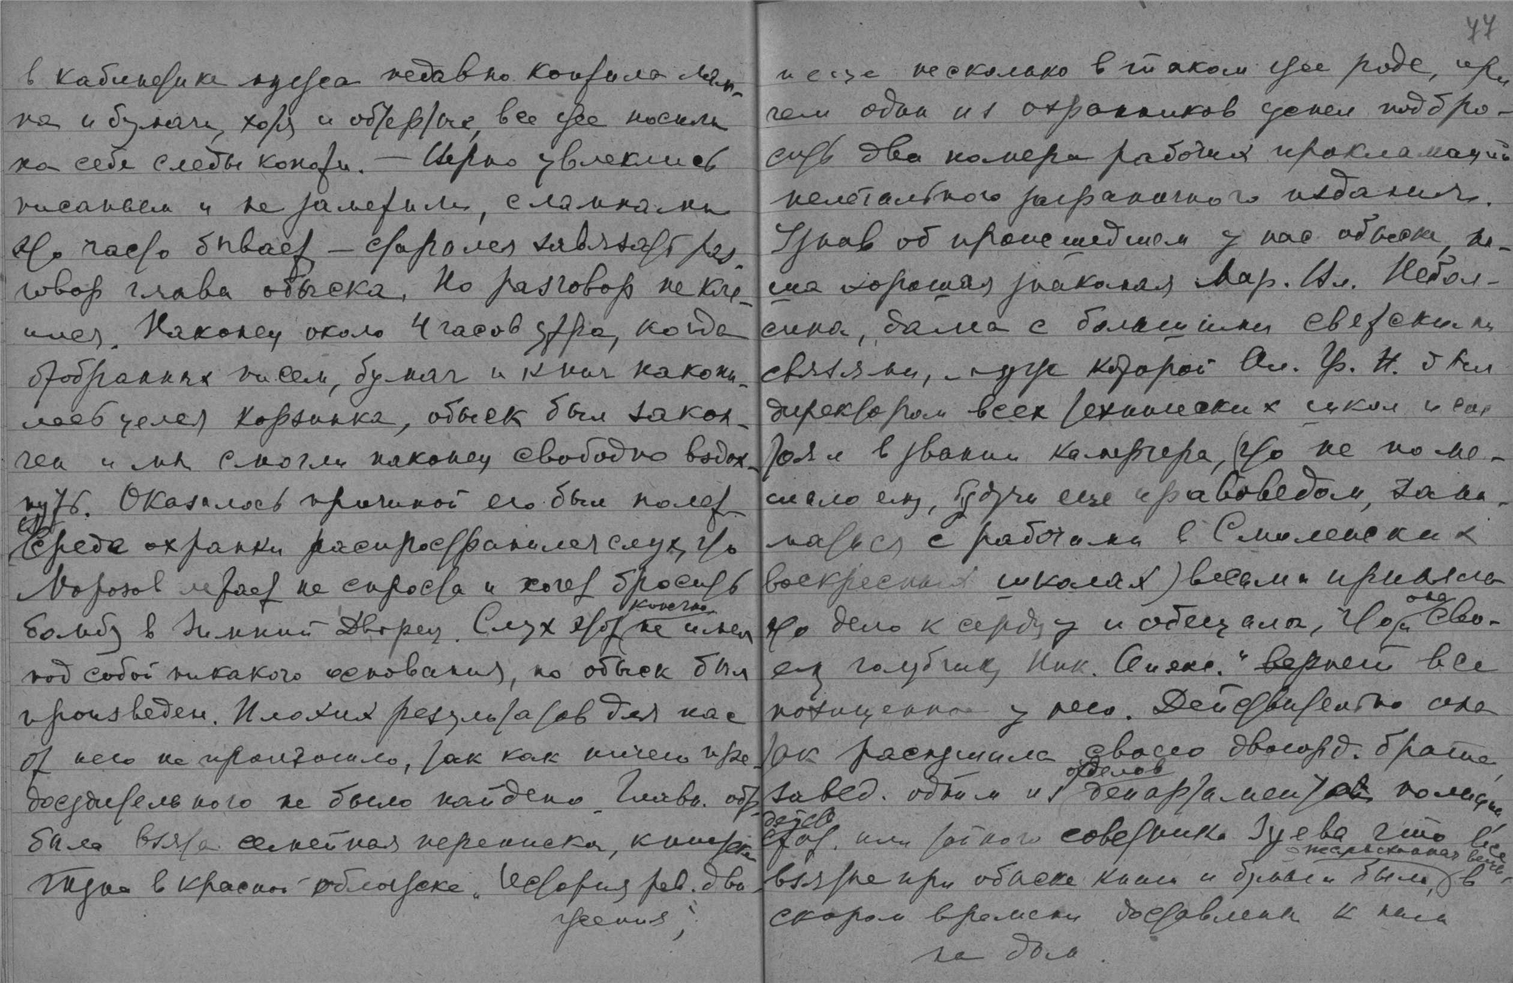 в кабинетике мужа недавно коптила лам-
па и бумаги, хотя и обтертые, все же носили
на себе следы копоти. — Нервно увлеклись
писаньем и не заметили, с лампами
это часто бывает — старался завязать раз-
говор глава обыска. Но разговор не кле-
ился. Наконец около 4 часов утра, когда
отобранных писем, бумаг и книг накопи-
лась целая корзинка, обыск был закон-
чен и мы смогли наконец свободно вздох-
нуть. Оказалось причиной его был полет
Среди охранки распространился слух, что
Морозов летает не спроста и хочет бросить
бомбу в Зимний Дворец. Слух этот конечно не имел
под собой никакого основания, но обыск был
произведен. Плохих результатов для нас
от него не произошло, так как ничего пре-
досудительного не было найдено. Главн. обр.
была взята семейная переписка, книжки
Туна в красной обложке „История рев. дви-
жения",
77
и еще несколько в таком же роде, при
чем один из охранников успел подбро-
сить два номера рабочих прокламаций
нелегального заграничного издания.
Узнав об происшедшем у нас обыске, на-
ша хорошая знакомая Мар. Ил. Небол-
сина, дама с большими светскими
связями, муж которой Ал. Ф. Н. был
директором всех технических школ и сос
тоял в звании камергера, (что не поме-
шало ему, будучи еще правоведом, зани-
маться с рабочими в Смоленских
воскресных школах) весьма приняла
это дело к сердцу и обещала, что она „сво-
ему голубчику Ник. Алекс." вернет все
похищенное у него. Действительно она
так распушила своего двоюрод. брата,
завед. одним из отделов департамента полиции,
действ. или тайного советника Зуева что все
взятые при обыске книги и бумаги были, в
скором времени доставлены к нам
на дом.